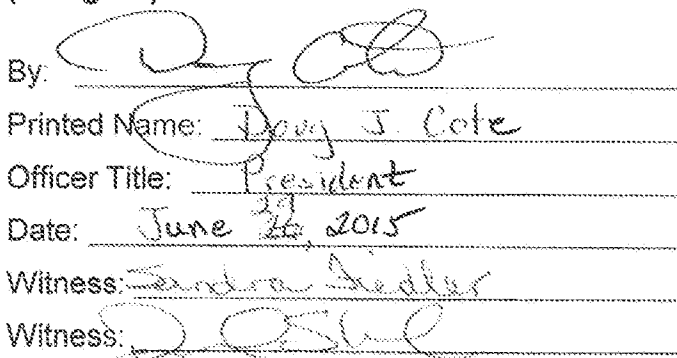 By:
Printed Name: Doug J. Cote
Officer Title: President
Date: June 29, 2015
Witness: Sandra Fiedler
Witness: